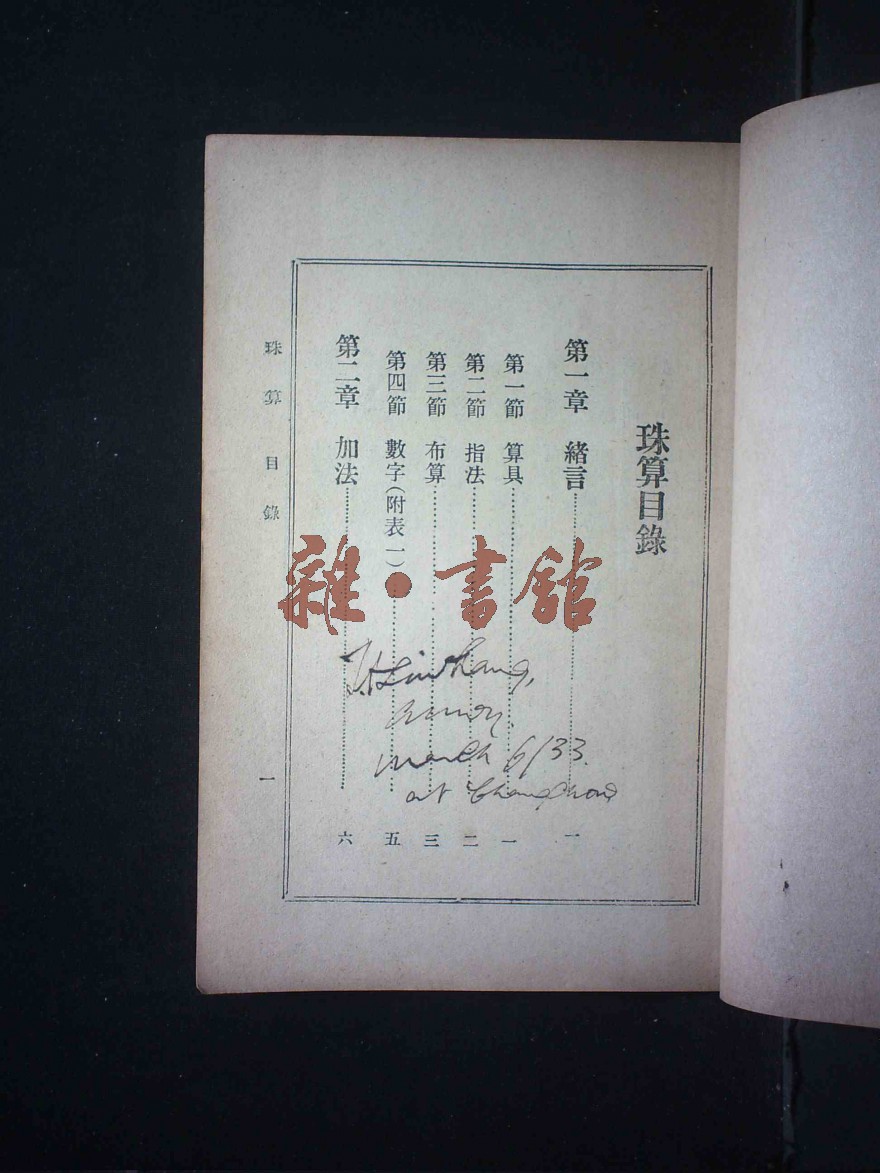 珠算目錄
第一章　緒言……一
第一節　算具……一
第二節　指法……二
第三節　布算……三
第四節　數字（附表一）……五
第二章　加法……六
珠算　目錄
一
雜·書館
March 6/33.
at